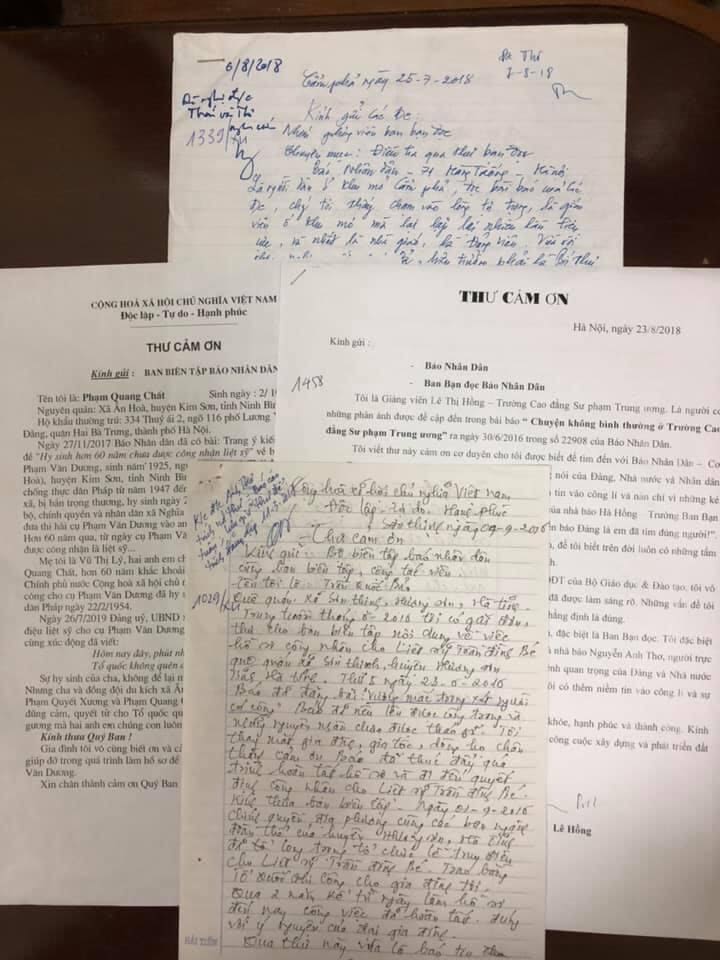 6/8/2018
Cẩm phả ngày 25-7-2018
Đề nghị đ/c
1339/
Kính gửi Các Đc
Nhóm phóng viên ban bạn đọc
Chuyên mục: Điều tra qua thư bạn đọc
Báo Nhân dân - 71 Hàng Trống - Hà nội
Là người dân ở khu mỏ Cẩm phả, đọc bài báo của Các
Đc, chúng tôi thấy chạm vào lòng tự trọng, là giáo
viên ở khu mỏ mà lại lặp lại nhiều lần tiêu
cực, và nhất là nhà giáo, là đảng viên. Vừa rồi
CỘNG HOÀ XÃ HỘI CHỦ NGHĨA VIỆT NAM
Độc lập - Tự do - Hạnh phúc
THƯ CẢM ƠN
Kính gửi : BAN BIÊN TẬP BÁO NHÂN DÂN
Tên tôi là: Phạm Quang Chát Sinh ngày : 2/ 10
Nguyên quán: Xã Ân Hoà, huyện Kim Sơn, tỉnh Ninh Bì
Hộ khẩu thường trú: 334 Thuý ái 2, ngõ 116 phố Lương
Đăng, quận Hai Bà Trưng, thành phố Hà Nội.
Ngày 27/11/2017 Báo Nhân dân đã có bài: Trang ý kiế
đề "Hy sinh hơn 60 năm chưa được công nhận liệt sỹ" về b
Phạm Văn Dương, sinh năm 1925, ngu
Hoà), huyện Kim Sơn, tỉnh Ninh Bình
chống thực dân Pháp từ năm 1947 đến
xã, bị bản trọng thương, hy sinh ngày 2
bộ, chính quyền và nhân dân xã Nghĩa
đưa thi hài cụ Phạm Văn Dương vào an
Hơn 60 năm qua, từ ngày cụ Phạm Văn
được công nhận là liệt sỹ...
Mẹ tôi là Vũ Thị Lý, hai anh em ch
Quang Chát, hơn 60 năm khắc khoải
Chính phủ nước Cộng hoà xã hội chủ n
công cho cụ Phạm Văn Dương đã hy s
dân Pháp ngày 22/2/1954.
Ngày 26/7/2019 Đảng uỷ, UBND x
điệu liệt sỹ cho cụ Phạm Văn Dương
cùng xúc động đã viết:
Hôm nay đây, phút nh
Tổ quốc không quên c
Sự hy sinh của cha, không để lại m
Nhưng cha và đồng đội du kích xã Ân
Phạm Quyết Xương và Phạm Quang C
dũng cảm, quyết cho Tổ quốc qu
gương mà hai anh em chúng con luôn
Kính thưa Quý Ban !
Gia đình tôi vô cùng biết ơn và cả
giúp đỡ trong quá trình làm hồ sơ để
Văn Dương.
Xin chân thành cảm ơn Quý Ban
THƯ CẢM ƠN
Hà Nội, ngày 23/8/2018
Kính gửi :
1458
- Báo Nhân Dân
- Ban Bạn đọc Báo Nhân Dân
Tôi là Giảng viên Lê Thị Hồng – Trường Cao đẳng Sư phạm Trung ương. Là người có
những phản ánh được đề cập đến trong bài báo “ Chuyện không bình thường ở Trường Cao
đẳng Sư phạm Trung ương” ra ngày 30/6/2016 trong số 22908 của Báo Nhân Dân.
Tôi viết thư này cảm ơn cơ duyên cho tôi được biết để tìm đến với Báo Nhân Dân – Cơ
nói của Đảng, Nhà nước và Nhân dân
tin vào công lí và nản chí vì những kẻ
của nhà báo Hà Hồng Trưởng Ban Bạn
n báo Đảng là em đã tìm đúng người!”.
, để tôi biết trên đời luôn có những tấm
ĐT của Bộ Giáo dục & Đào tạo, tôi vô
đã được làm sáng rõ. Những vấn đề tôi
ẳng định là đúng.
đặc biệt là Ban Bạn đọc. Tôi đặc biệt
à báo Nguyễn Anh Thơ, người trực
nh quan trọng của Đảng và Nhà nước
i có thêm niềm tin vào công lí và sự
khỏe, hạnh phúc và thành công. Kính
cuộc xây dựng và phát triển đất
Lê Hồng
Cộng hoà xã hội chủ nghĩa Việt Nam
Độc lập - Tự do - Hạnh phúc
Sơn thịnh ngày 09-9-2016
Thư cảm ơn
Kính gửi: Bộ biên tập báo nhân dân
cùng ban biên tập, cộng tác viên.
Tên tôi là Trần Quốc Bảo
1029/
Quê quán: Xã Sơn thịnh, Hương sơn, Hà tĩnh.
Trung tuần tháng 6-2016 tôi có gửi đơn,
thư cho ban biên tập nội dung về việc
hồ sơ công nhận cho Liệt sỹ Trần đình Bé
quê quán xã Sơn thịnh, huyện Hương sơn
tỉnh Hà tĩnh. Thứ 5 ngày 23-6-2016
Báo đã đăng bài "Vướng mắc trong xét người
có công" Báo đã nêu lên được công trạng và
những nguyên nhân chưa được tháo gỡ. Tôi
thay mặt gia đình, gia tộc, dòng họ chân
thành cảm ơn Báo đã thúc đẩy quá
trình hoàn tất hồ sơ và đi đến quyết
định công nhận cho Liệt sỹ Trần đình Bé.
Kính thưa ban biên tập. Ngày 01-9-2016
chính quyền địa phương cùng các ban ngành
đoàn thể của huyện Hương sơn, Hà Tĩnh
đã long trọng tổ chức lễ truy điệu
cho Liệt sỹ Trần đình Bé. Trao bằng
Tổ Quốc Ghi Công cho gia đình tôi.
Qua 2 năm kể từ ngày làm hồ sơ
đến nay công việc đã hoàn tất, đúng
với ý nguyện của đại gia đình.
Qua thư này vừa là báo tin
HẢI TIẾN